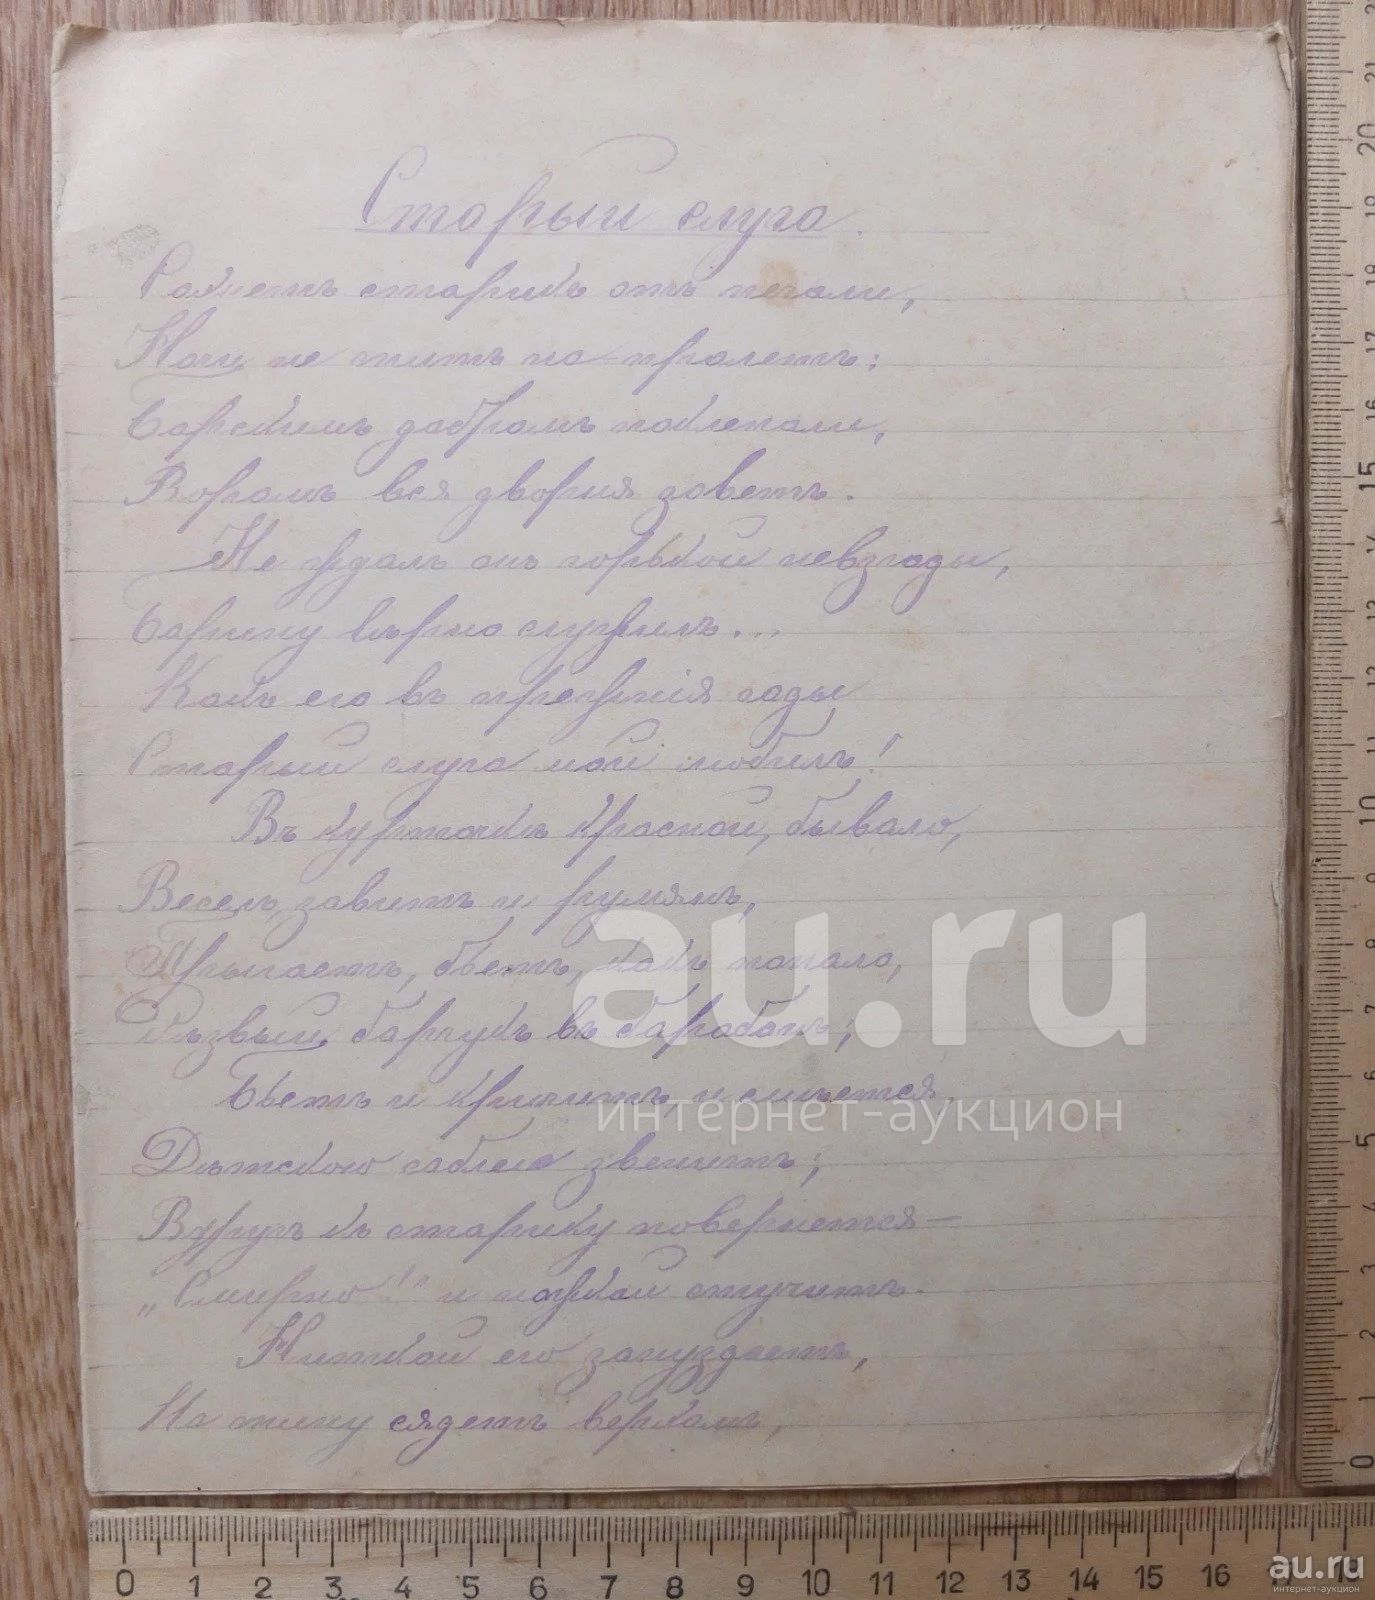 Старый слуга.
Сохнетъ старикъ отъ печали,
Ночи не спитъ на-пролетъ:
Барскимъ добромъ поклепали,
Воромъ вся дворня зоветъ.
Не ждалъ онъ горькой невзгоды,
Барину вѣрно служилъ...
Какъ его въ прежнія годы
Старый слуга мой любилъ!
Въ курткѣ красной, бывало,
Веселъ, завитъ и румянъ,
Прыгаетъ, бьетъ, какъ попало,
Рѣзвый барчукъ въ барабанъ;
Бьетъ и кричитъ, и смѣется,
Дѣтскою саблею звенитъ;
Вдругъ къ старику повернется —
„Смирно!“ и ножкой стучитъ.
Ниткой его зануздаетъ,
На спину сядетъ верхомъ,
au.ru
интернет-аукцион
0 1 2 3 4 5 6 7 8 9 10 11 12 13 14 15 16 17 18
au.ru
интернет-аукцион